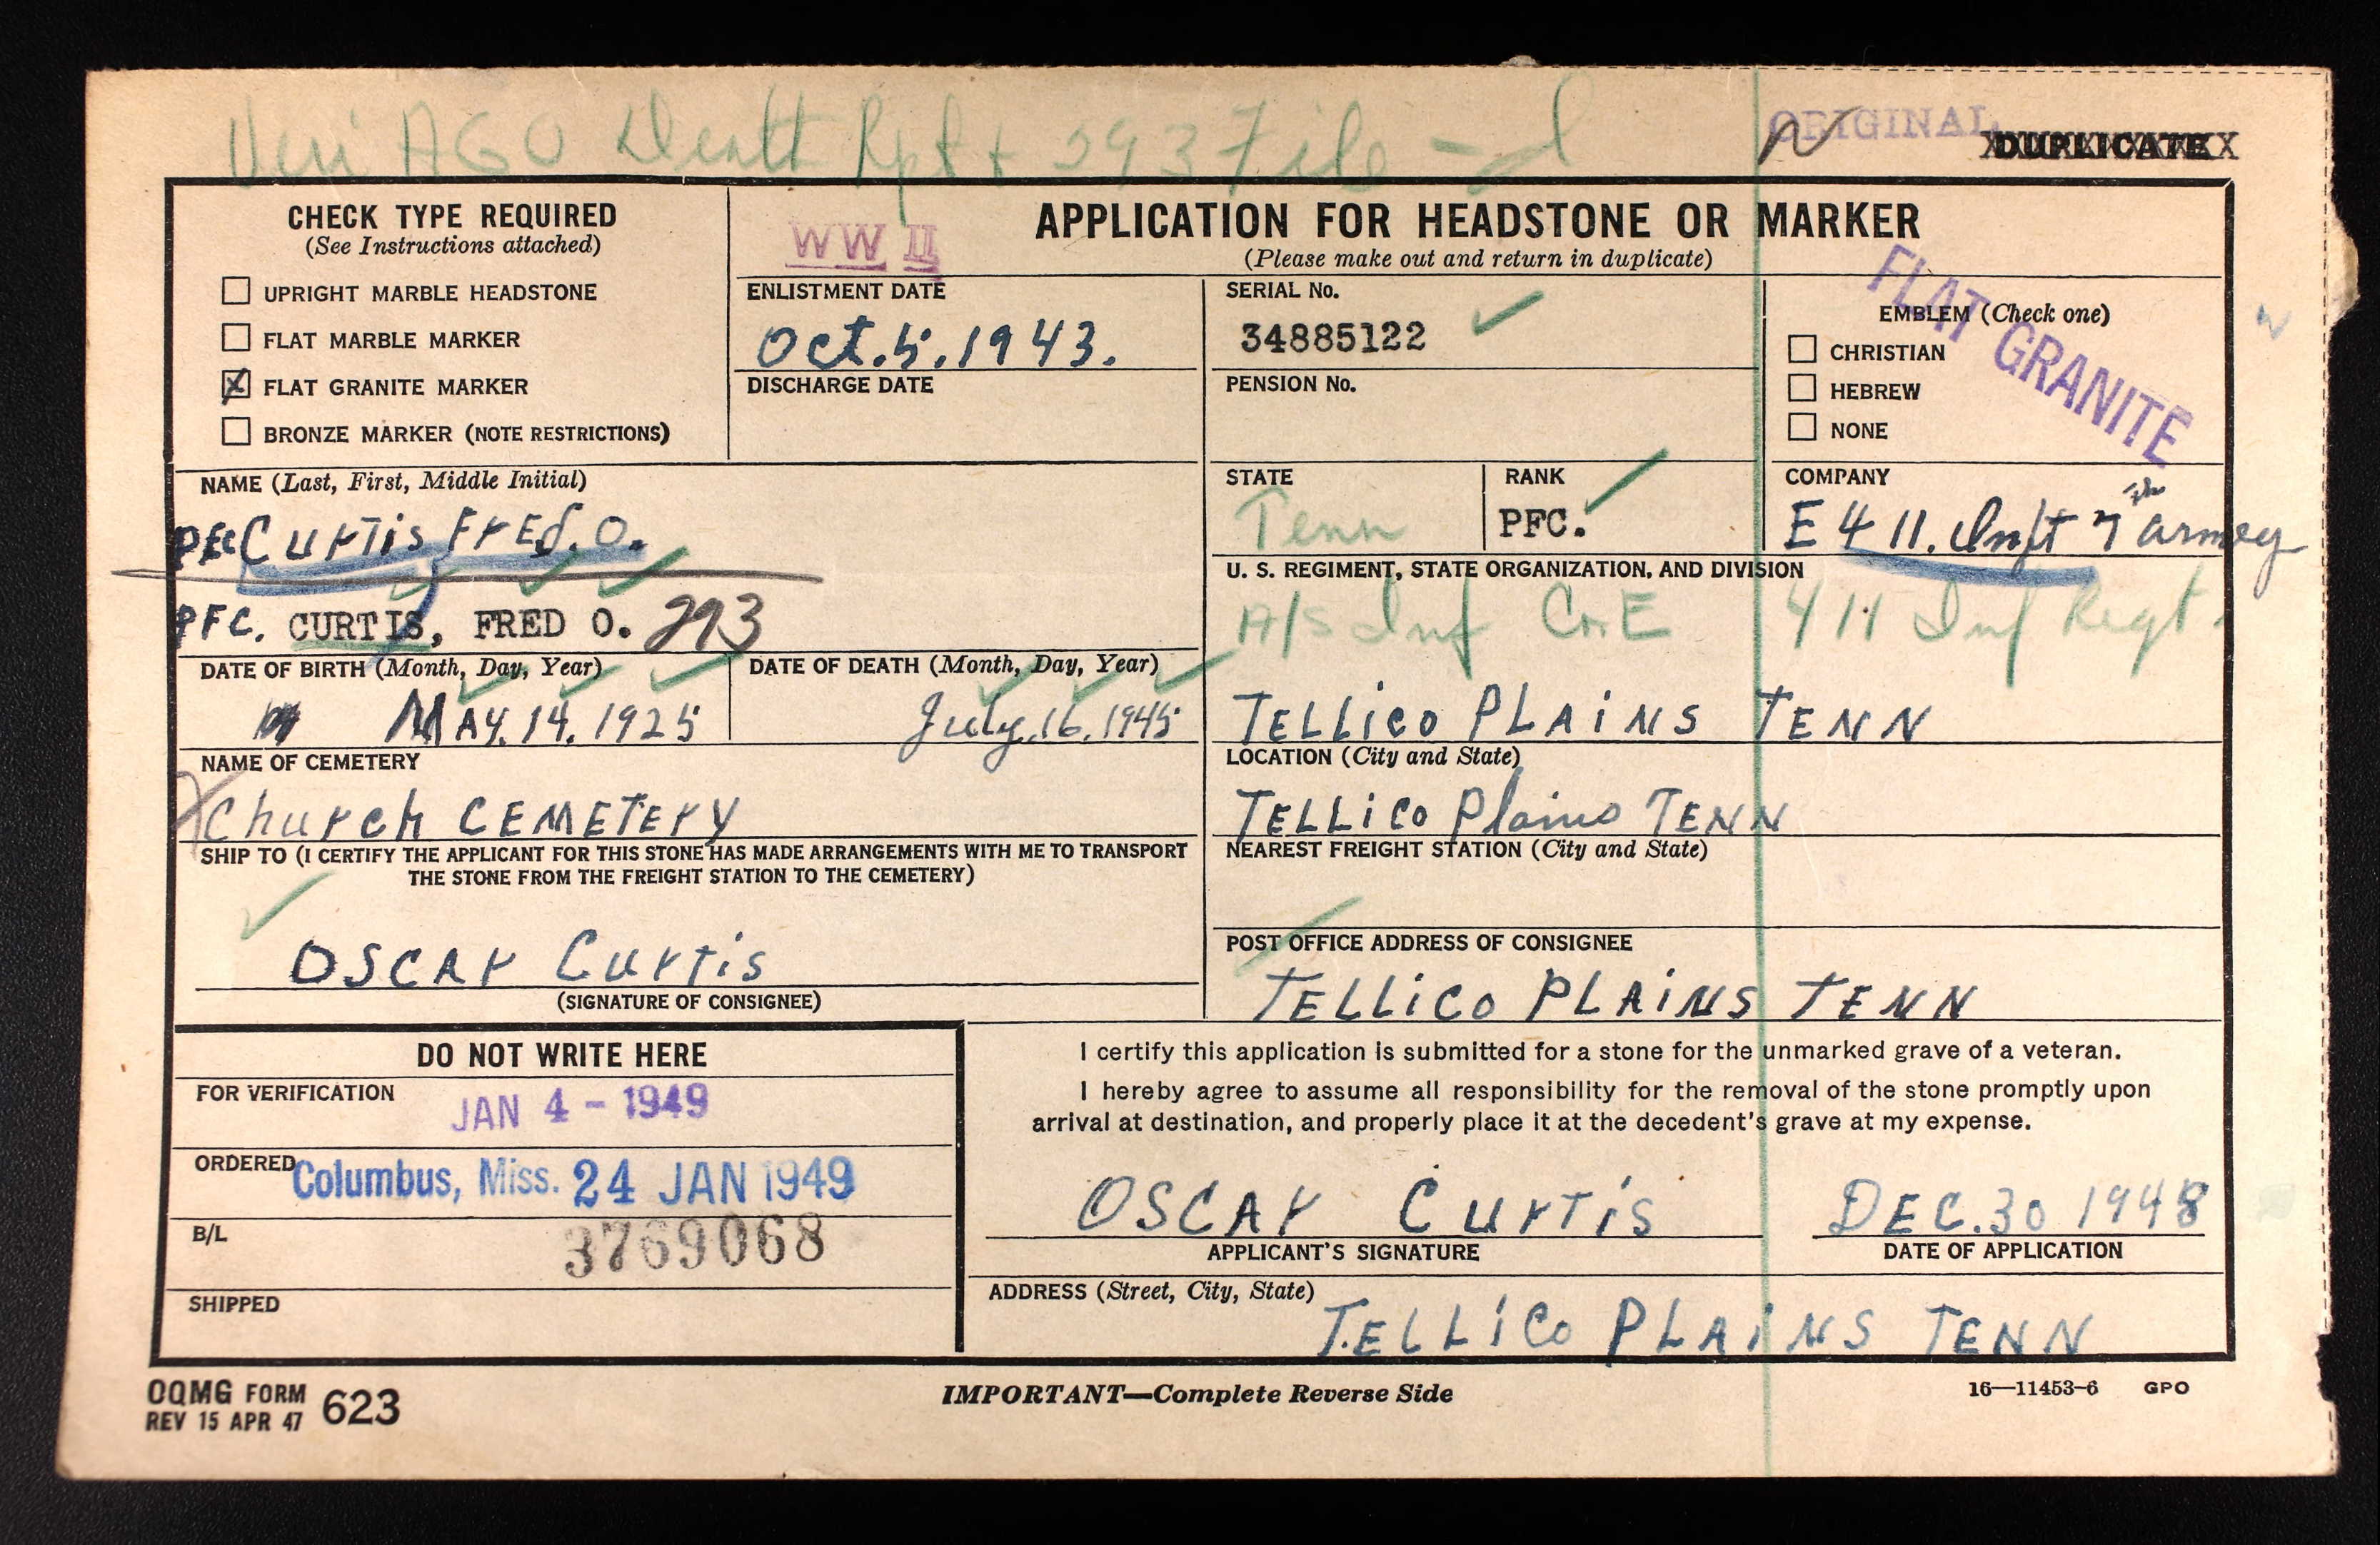 Veri AGO Death Rpt + 293 File
ORIGINAL
N
DUPLICATE
CHECK TYPE REQUIRED
(See Instructions attached)
UPRIGHT MARBLE HEADSTONE
FLAT MARBLE MARKER
FLAT GRANITE MARKER
BRONZE MARKER (NOTE RESTRICTIONS)
WW II
APPLICATION FOR HEADSTONE OR MARKER
(Please make out and return in duplicate)
ENLISTMENT DATE
Oct.5.1943.
DISCHARGE DATE
SERIAL No.
34885122
PENSION No.
FLAT GRANITE
EMBLEM (Check one)
CHRISTIAN
HEBREW
NONE
NAME (Last, First, Middle Initial)
PFC Curtis FrEd. O.
PFC. CURTIS, FRED O. 293
STATE
Tenn
RANK
PFC.
COMPANY
E 411. Inft 7th armey
U. S. REGIMENT, STATE ORGANIZATION, AND DIVISION
A/S Inf Co. E 411 Inf Regt.
DATE OF BIRTH (Month, Day, Year)
MAY. 14. 1925
DATE OF DEATH (Month, Day, Year)
July.16.1945
TELLiCO PLAiNS TENN
NAME OF CEMETERY
Church CEMETErY
LOCATION (City and State)
TELLiCo Plains TENN
SHIP TO (I CERTIFY THE APPLICANT FOR THIS STONE HAS MADE ARRANGEMENTS WITH ME TO TRANSPORT
THE STONE FROM THE FREIGHT STATION TO THE CEMETERY)
NEAREST FREIGHT STATION (City and State)
OSCAr Curtis
(SIGNATURE OF CONSIGNEE)
POST OFFICE ADDRESS OF CONSIGNEE
TELLiCo PLAiNS TENN
DO NOT WRITE HERE
FOR VERIFICATION
JAN 4 - 1949
ORDERED
Columbus, Miss. 24 JAN 1949
B/L
3769068
SHIPPED
I certify this application is submitted for a stone for the unmarked grave of a veteran.
I hereby agree to assume all responsibility for the removal of the stone promptly upon
arrival at destination, and properly place it at the decedent's grave at my expense.
OSCAr Curtis
APPLICANT'S SIGNATURE
DEC.30 1948
DATE OF APPLICATION
ADDRESS (Street, City, State)
TELLiCo PLAiNS TENN
OQMG FORM 623
REV 15 APR 47
IMPORTANT—Complete Reverse Side
16—11453-6 GPO